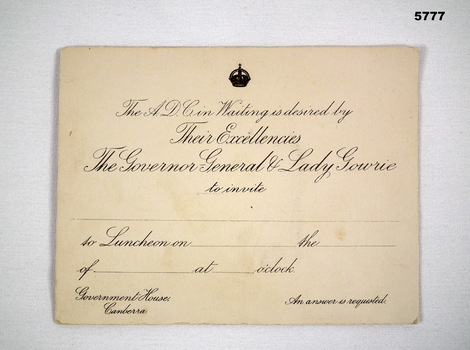 5777
The A.D.C in Waiting is desired by
Their Excellencies
The Governor-General & Lady Gowrie
to invite
to Luncheon on the
of at o'clock.
Government House,
Canberra
An answer is requested.